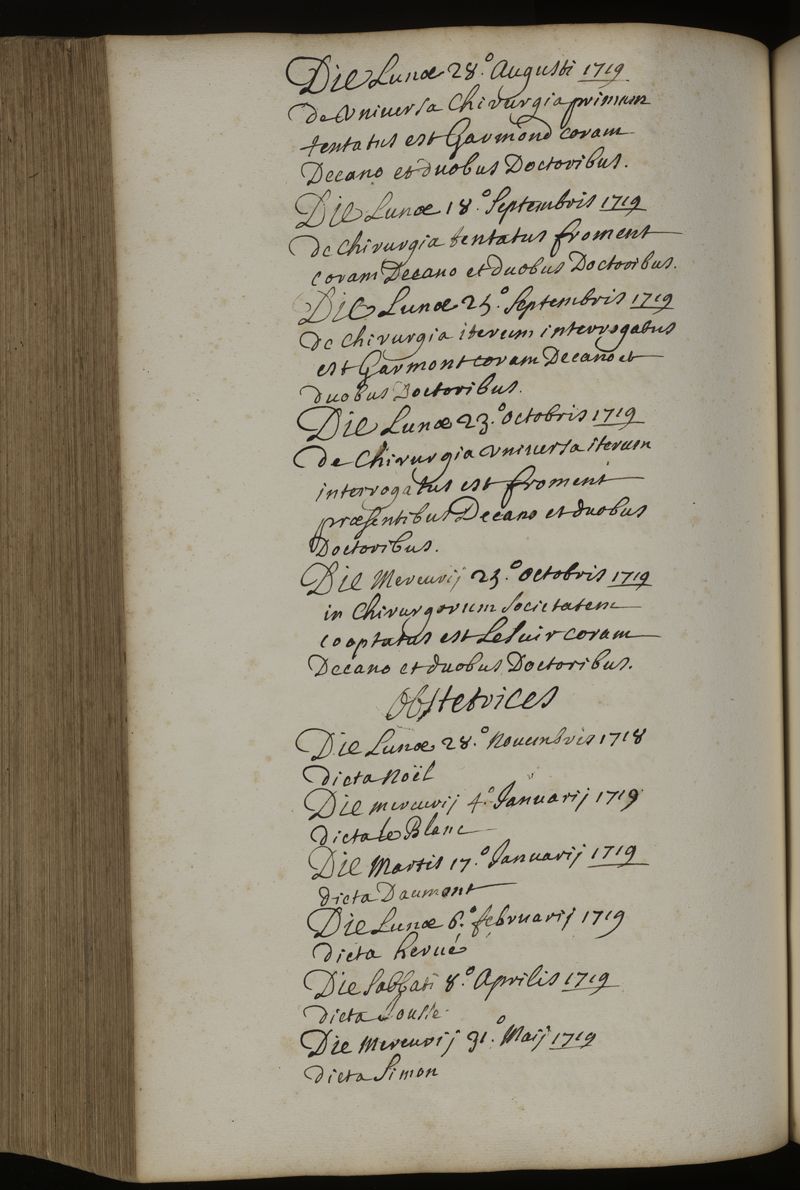 Die Lunæ 28.º Augusti 1719
de Vniuersa Chirurgia primum
tentatus est Garmond coram
Decano et duobus Doctoribus.
Die Lunæ 18.º Septembris 1719
de chirurgia tentatus froment
coram Decano et duobus Doctoribus.
Die Lunæ 25.º Septembris 1719
de chirurgia iterum interrogatus
est Garmont coram Decano et
duobus Doctoribus.
Die Lunæ 23.º octobris 1719
de Chirurgia vniuersa iterum
interrogatus est froment
præsentibus Decano et duobus
Doctoribus.
Die Mercurij 25.º octobris 1719
in Chirurgorum Societatem
cooptatus est LeSuir coram
Decano et duobus Doctoribus.
Obstetrices
Die Lunæ 28.º Nouembris 1718
dicta Noël
Die mercurij 4.º Januarij 1719
dicta le Blanc
Die Martis 17.º Januarij 1719
dicta Daumont
Die Lunæ 6.º februarij 1719
dicta hervé
Die Sabbati 8.º Aprilis 1719
dicta
Die Mercurij 31.º Maij 1719
dicta Simon